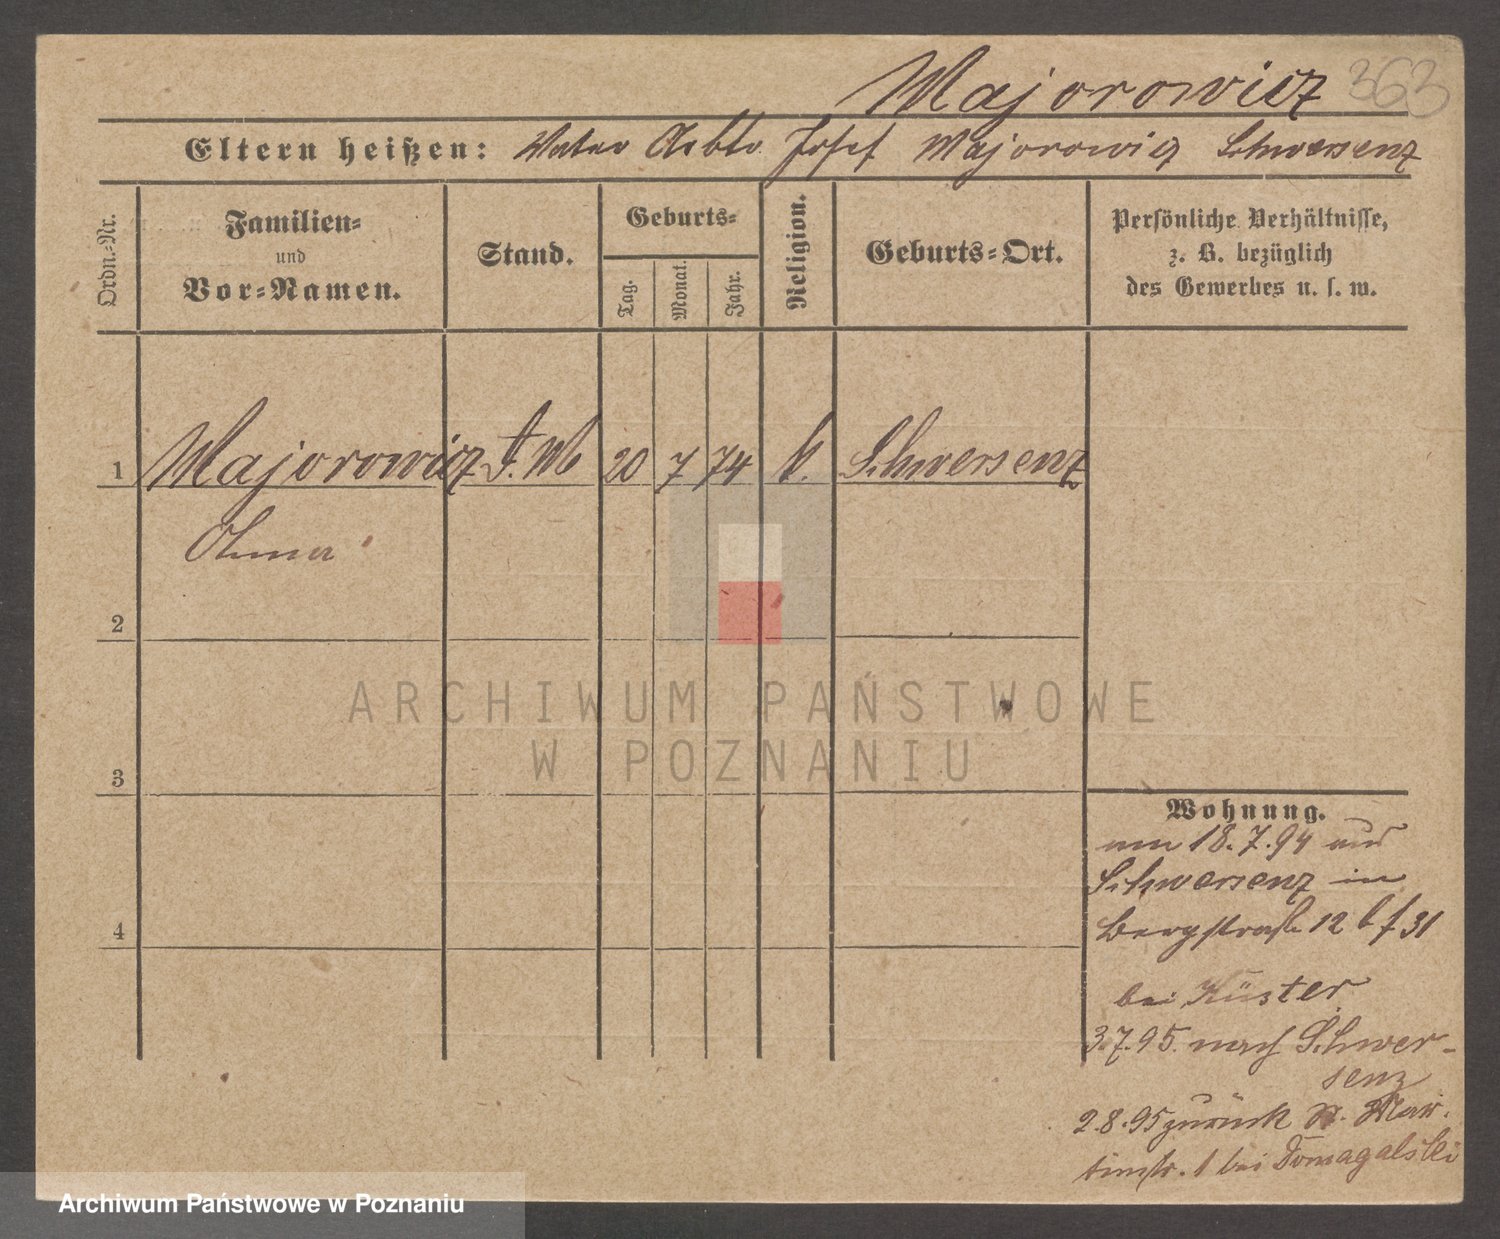 Majorowicz 363
Eltern heißen: Vater Arbtr. Josef Majorowicz Schwersenz
Ordn.-Nr.
Familien-
und
Vor-Namen.
Stand.
Geburts-
Tag.
Monat.
Jahr.
Religion.
Geburts-Ort.
Persönliche Verhältnisse,
z. B. bezüglich
des Gewerbes u. s. w.
1 Majorowicz 20 7 74 k. Schwersenz
2
ARCHIWUM PAŃSTWOWE
W POZNANIU
3
4
Wohnung.
am 18.7.94 aus
Schwersenz in
Bergstraße 12 b f 31
bei Küster
3.7.95. nach Schwer-
senz
2.8.95 zurück n. Mar-
tinstr. 1 bei Domagalski
Archiwum Państwowe w Poznaniu